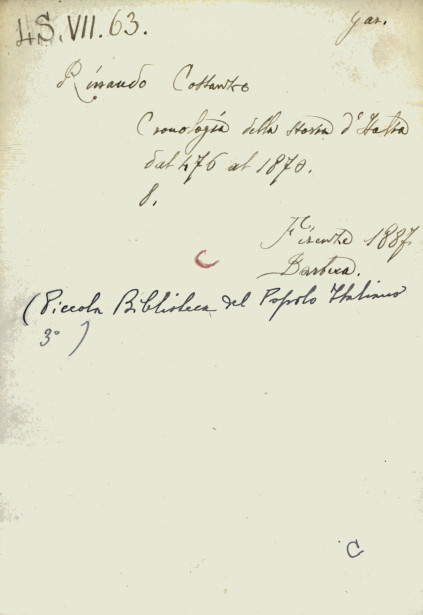 4S.VII.63.
Gar.
Rinaudo Costanzo
Cronologia della storia d'Italia
dal 476 al 1870.
8.
Firenze 1887.
Barbèra.
(Piccola Biblioteca del Popolo Italiano
3°)
C
C